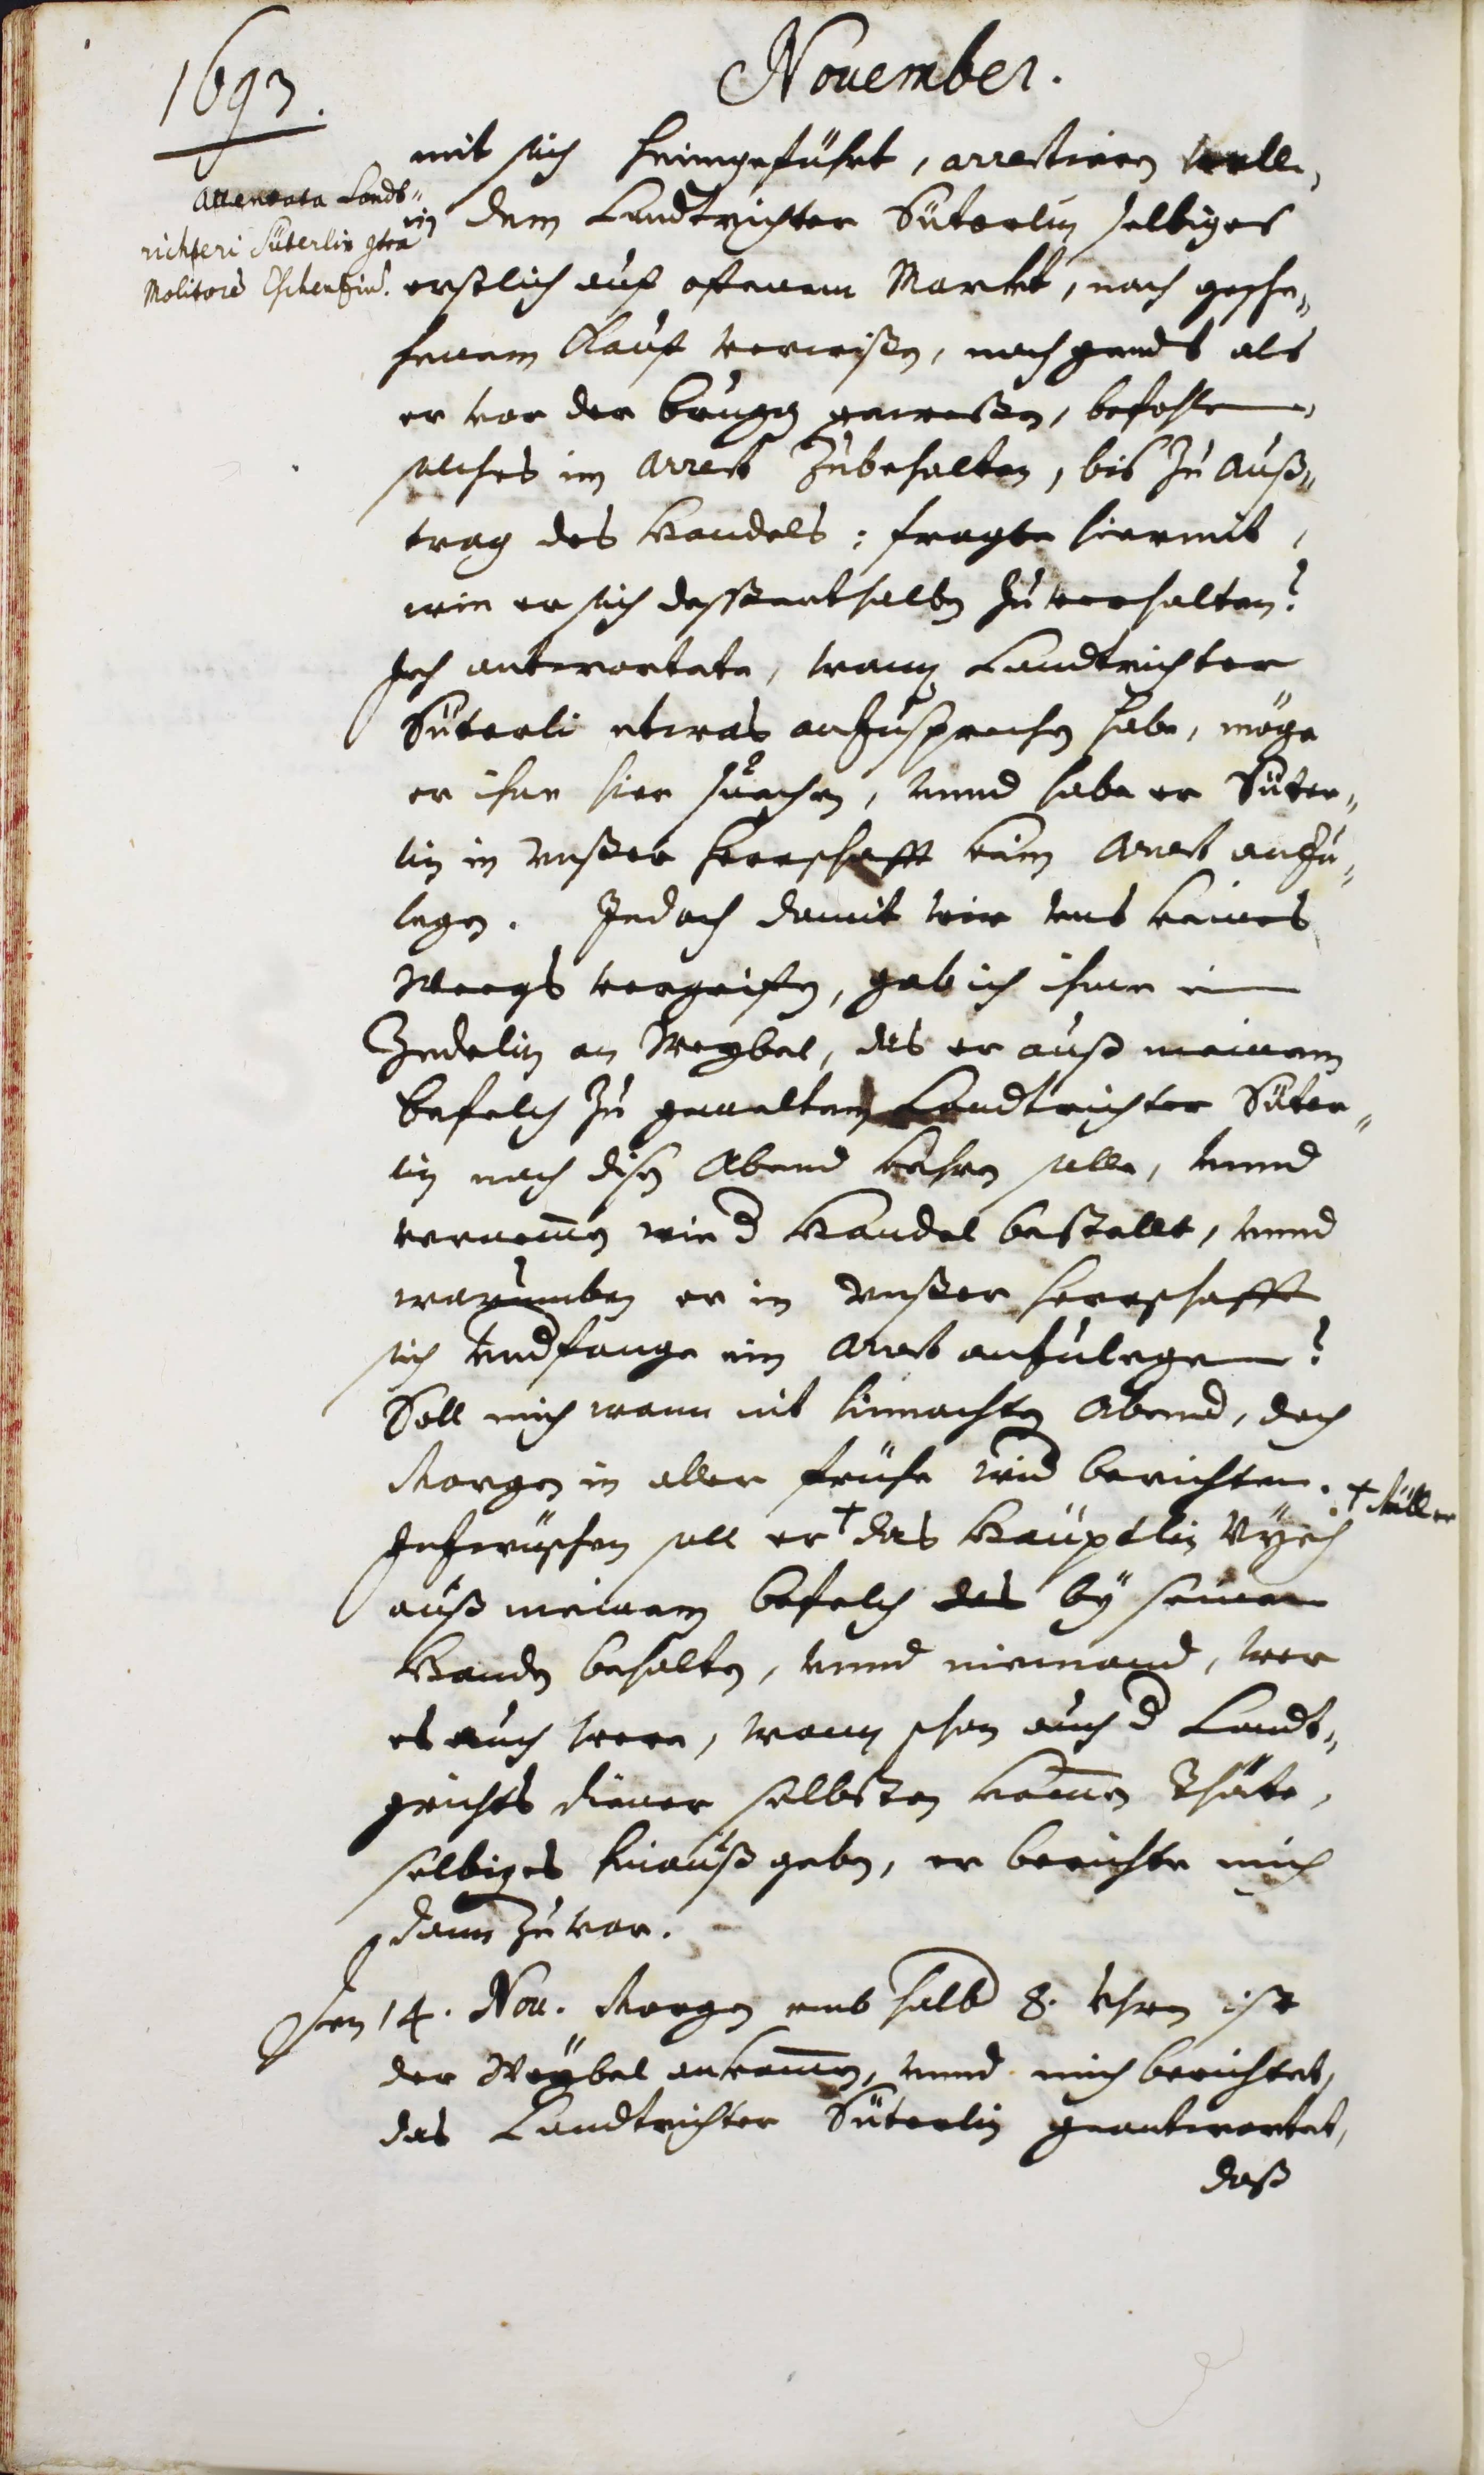 1693.
November.
mit sich heimgeführt, arrestieren wolle,
Attentata Landt„
richteri Süterlin ctra
Molitore Eschenzin.
in dem Landtrichter Süterlin selbiges
erstlich auf offenem Markt, nach gesche„
henem Kauf verwisen, nachgends als
er vor der brugg gewesen, befohlen,
solches im Arrest zubehalten, bis zu auß„
trag des Handels: fragte hiermit,
wie er sich dessenthalben zu verhalten?
Ich antwortete, wann Landtrichter
Süterli etwas anzusprechen habe, möge
er ihne hier suochen, vnnd habe er Süter„
lin in vnßer Herrschafft kein Arrest anzu„
legen. Jedoch damit wir vns keines
Weegs vergriffen, gab ich ihme ein
Zedelin an Weybel, das er auß meinem
befelch zu gemeltem Landtrichter Süter„
lin noch disen Abend kehren solle, vnnd
vernemmen wie d Handel bestellt, vnnd
warumben er in vnßer Herrschafft
sich vndfange ein Arrest anzulegen?
Soll mich wann nit hinachten Abend, doch
Morgen in aller frühe wid berichten.
† Müller
Inzwüschen soll er † das Häuptlin Vych
auß meinem befelch das by seinen
Handen behalten, vnnd niemand, wer
es auch were, wann schon auch d Landt„
grichts diener selbsten kommen thäte,
selbiges hinauß geben, er berichte mich
dann zuvor.
Den 14. Nov. Morgen vmb halb 8. Vhren ist
der Weÿbel ankommen, vnnd mich berichtet,
das Landtrichter Süterlin geantwortet,
daß